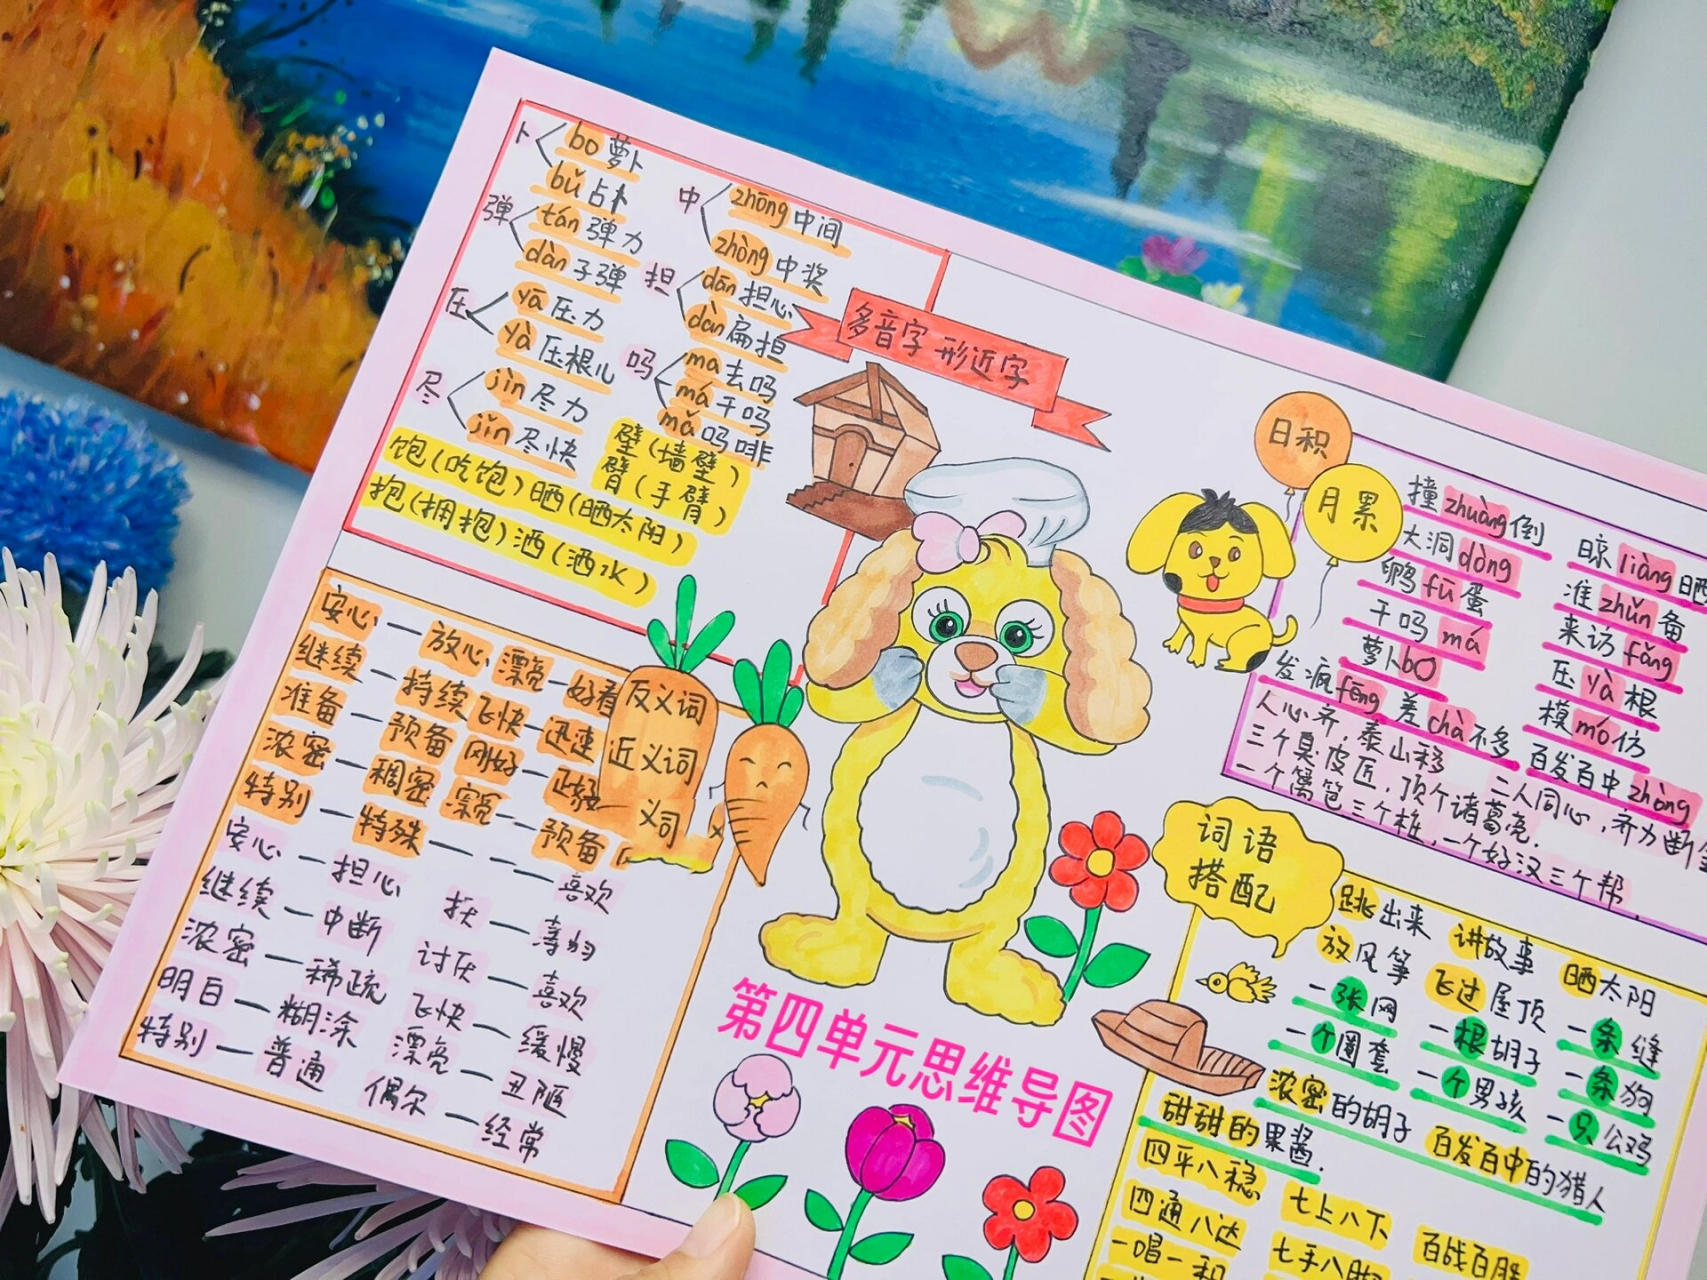 卜 bo 萝卜
bǔ 占卜
弹 tán 弹力
dàn 子弹
压 yā 压力
yà 压根儿
尽 jìn 尽力
jǐn 尽快
中 zhōng 中间
zhòng 中奖
担 dān 担心
dàn 扁担
吗 ma 去吗
má 干吗
mǎ 吗啡
饱(吃饱) 晒(晒太阳)
抱(拥抱) 洒(洒水)
壁(墙壁)
臂(手臂)
多音字 形近字
日积
月累
撞 zhuàng 倒
大洞 dòng
孵 fū 蛋
干吗 má
萝卜 bo
发疯 fēng 差 chà 不多 百发百中 zhòng
晾 liàng 晒
准 zhǔn 备
来访 fǎng
压 yà 根
模 mó 仿
人心齐，泰山移 二人同心，齐力断
三个臭皮匠，顶个诸葛亮.
一个篱笆三个桩，一个好汉三个帮.
安心—放心 漂亮—好看
继续—持续 飞快—迅速
准备—预备 刚好—正好
浓密—稠密
特别—特殊
预备
反义词
近义词
义词
安心—担心
继续—中断
浓密—稀疏
明白—糊涂
特别—普通
喜欢
讨厌—喜欢
飞快—缓慢
漂亮—丑陋
偶尔—经常
第四单元思维导图
词语
搭配
跳出来 讲故事 晒太阳
放风筝 飞过屋顶 一条缝
一张网 一根胡子 一条狗
一个圈套 一个男孩 一只公鸡
浓密的胡子 百发百中的猎人
甜甜的果酱.
四平八稳 七上八下 百战百胜
四通八达 七手八脚
一唱一和